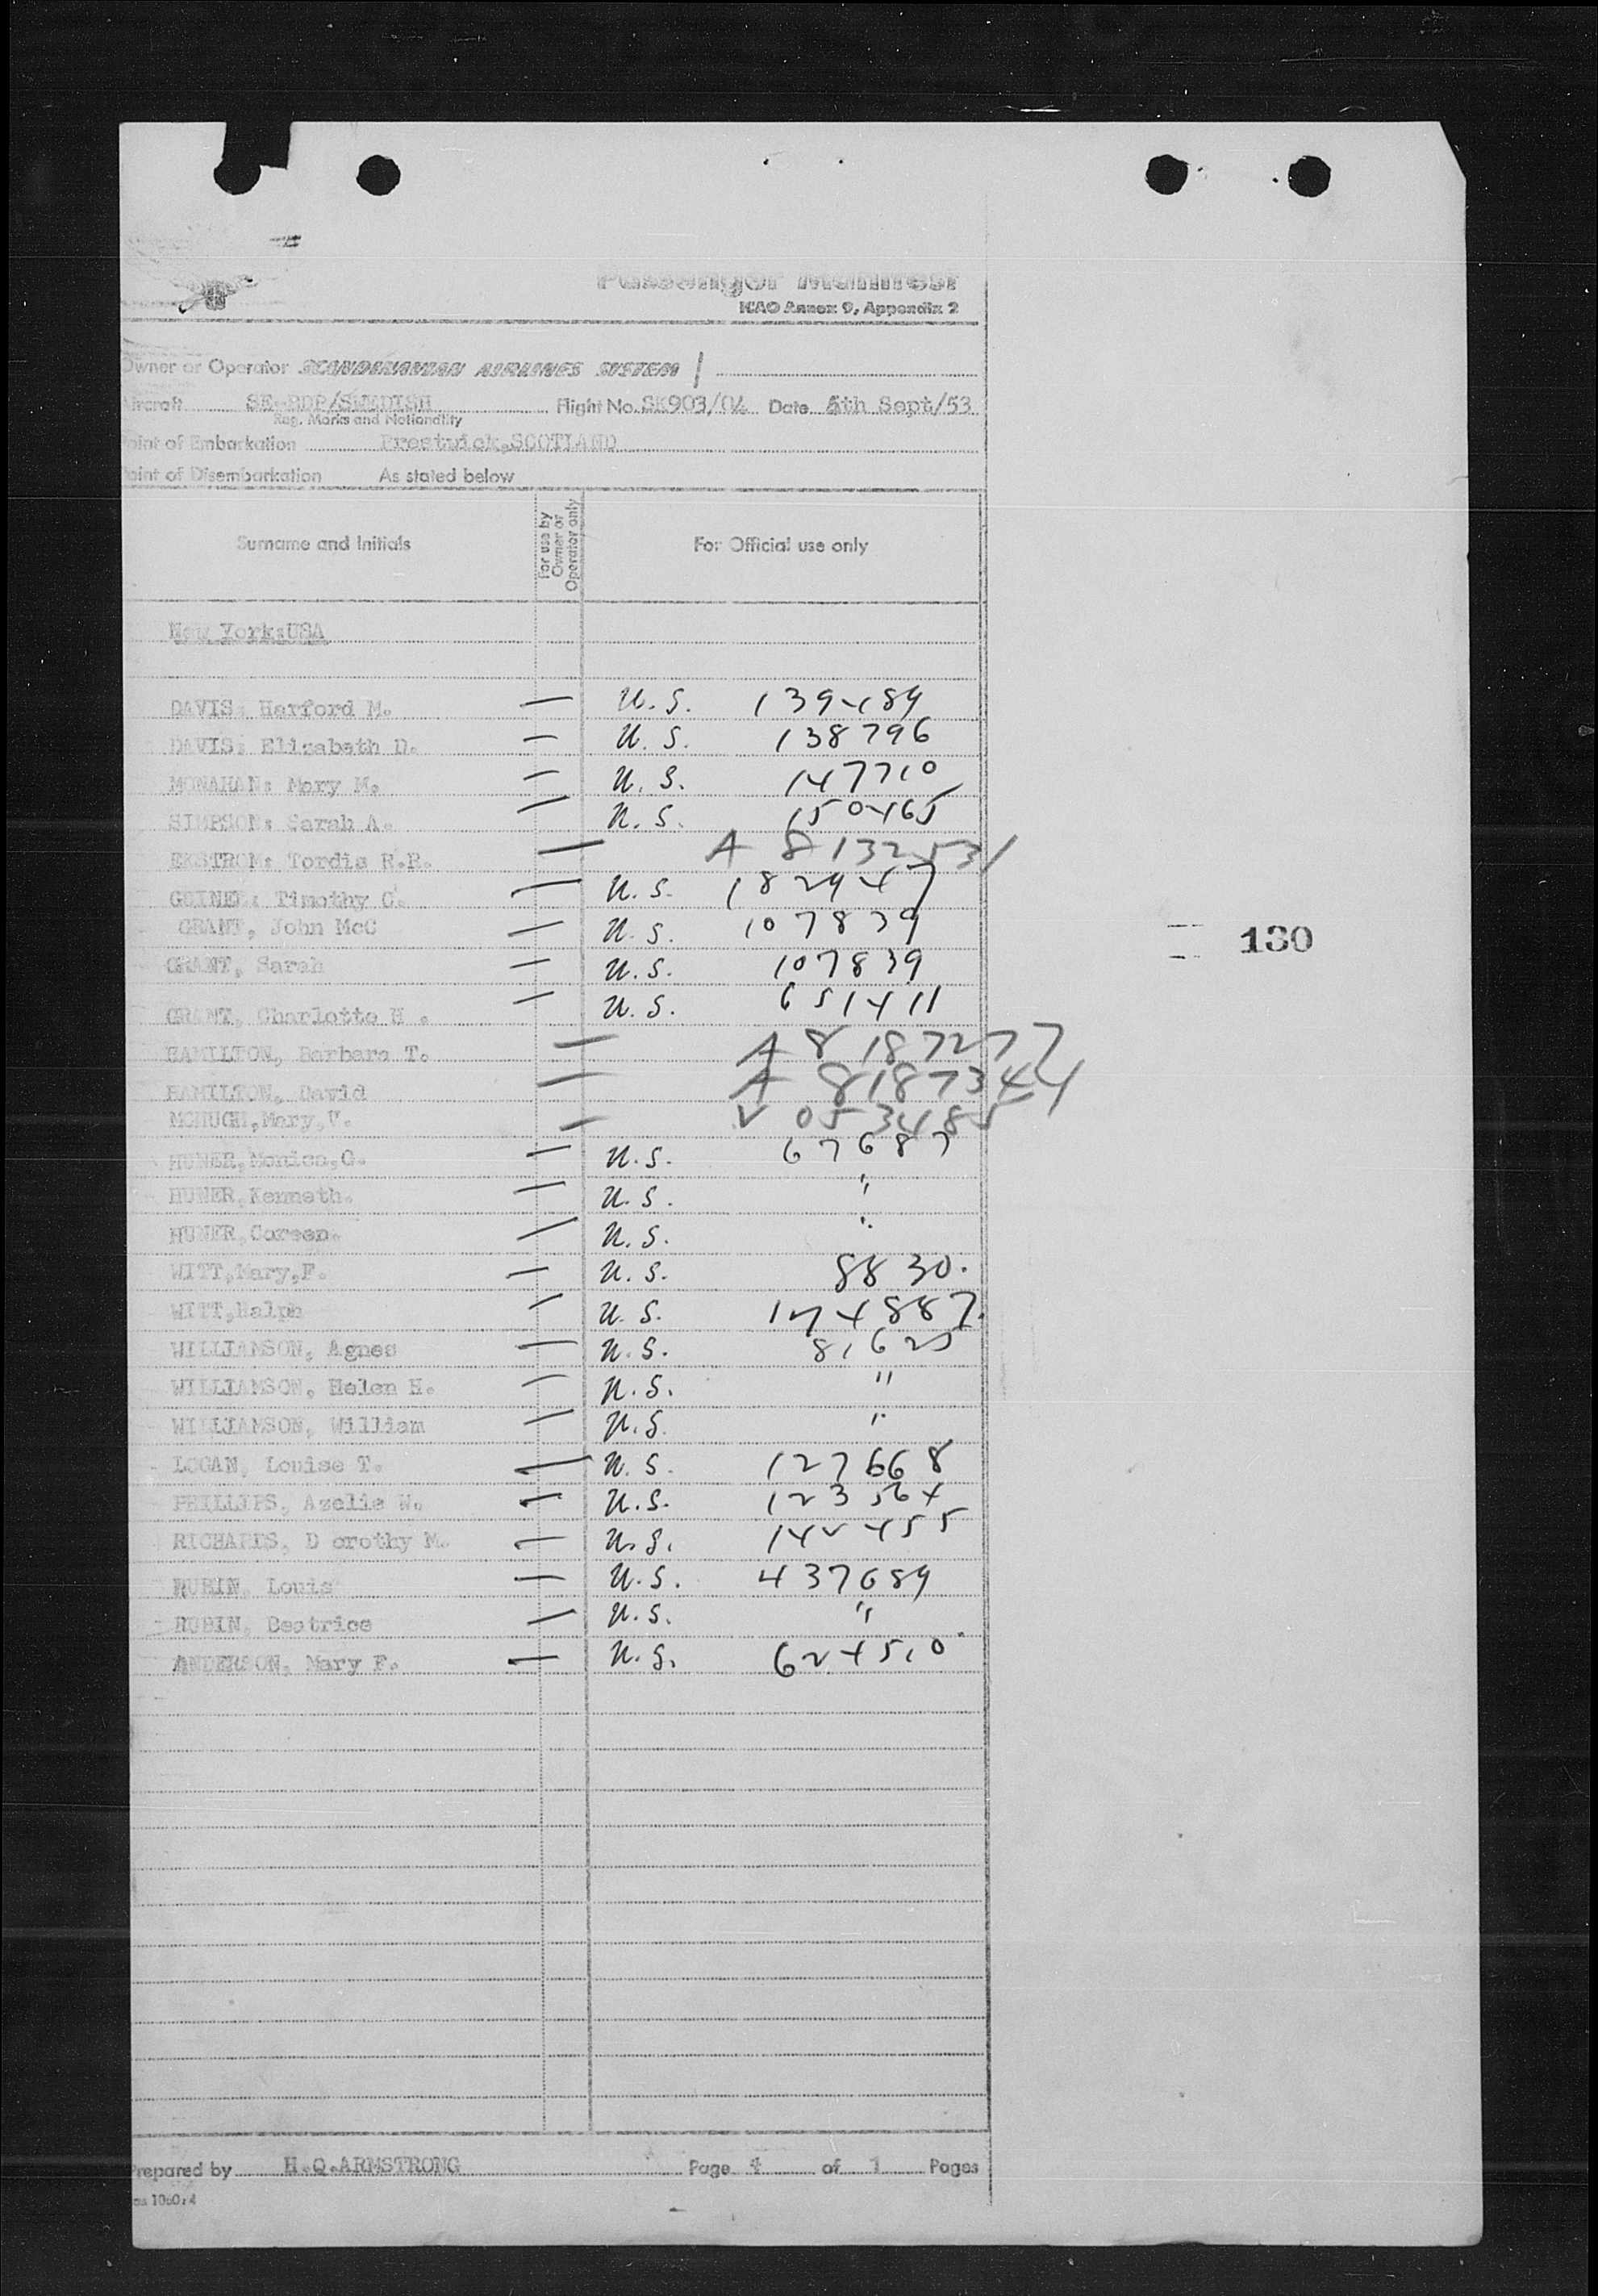 Passenger Manifest
ICAO Annex 9, Appendix 2
Owner or Operator SCANDINAVIAN AIRLINES SYSTEM
Aircraft SE-BDP/SWEDISH Flight No. SK903/04 Date 5th Sept/53
Reg. Marks and Nationality
Point of Embarkation Prestwick,SCOTLAND
Point of Disembarkation As stated below
Surname and Initials For use by Owner or Operator only For Official use only
New York:USA
DAVIS: Harford M. — U.S. 139489
DAVIS: Elizabeth D. — U.S. 138796
MONAHAN: Mary M. — U.S. 147710
SIMPSON: Sarah A. — U.S. 150465
EKSTROM: Tordis R.R. — A 8132531
Timothy C. — U.S. 182947
GRANT, John McC — U.S. 107839
130
GRANT, Sarah — U.S. 107839
GRANT, Charlotte H . — U.S. 651411
HAMILTON, Barbara T. — A 8187277
HAMILTON, David — A 8187344
MCHUGH,Mary,V. — V 053485
HUNER,Monica,G. — U.S. 67687
HUNER,Kenneth. — U.S. "
HUNER,Coreen. — U.S. "
WITT,Mary,F. — U.S. 8830.
WITT,Ralph — U.S. 174887.
WILLIAMSON, Agnes — U.S. 81625
WILLIAMSON, Helen H. — U.S. "
WILLIAMSON, William — U.S. "
LOGAN, Louise T. — U.S. 127668
PHILLIPS, Azelie W. — U.S. 123564
RICHARDS, D orothy M. — U.S. 142455
RUBIN, Louis — U.S. 437689
RUBIN, Beatrice — U.S. "
ANDERSON, Mary F. — U.S. 624510
Prepared by H.Q.ARMSTRONG Page 4 of 1 Pages